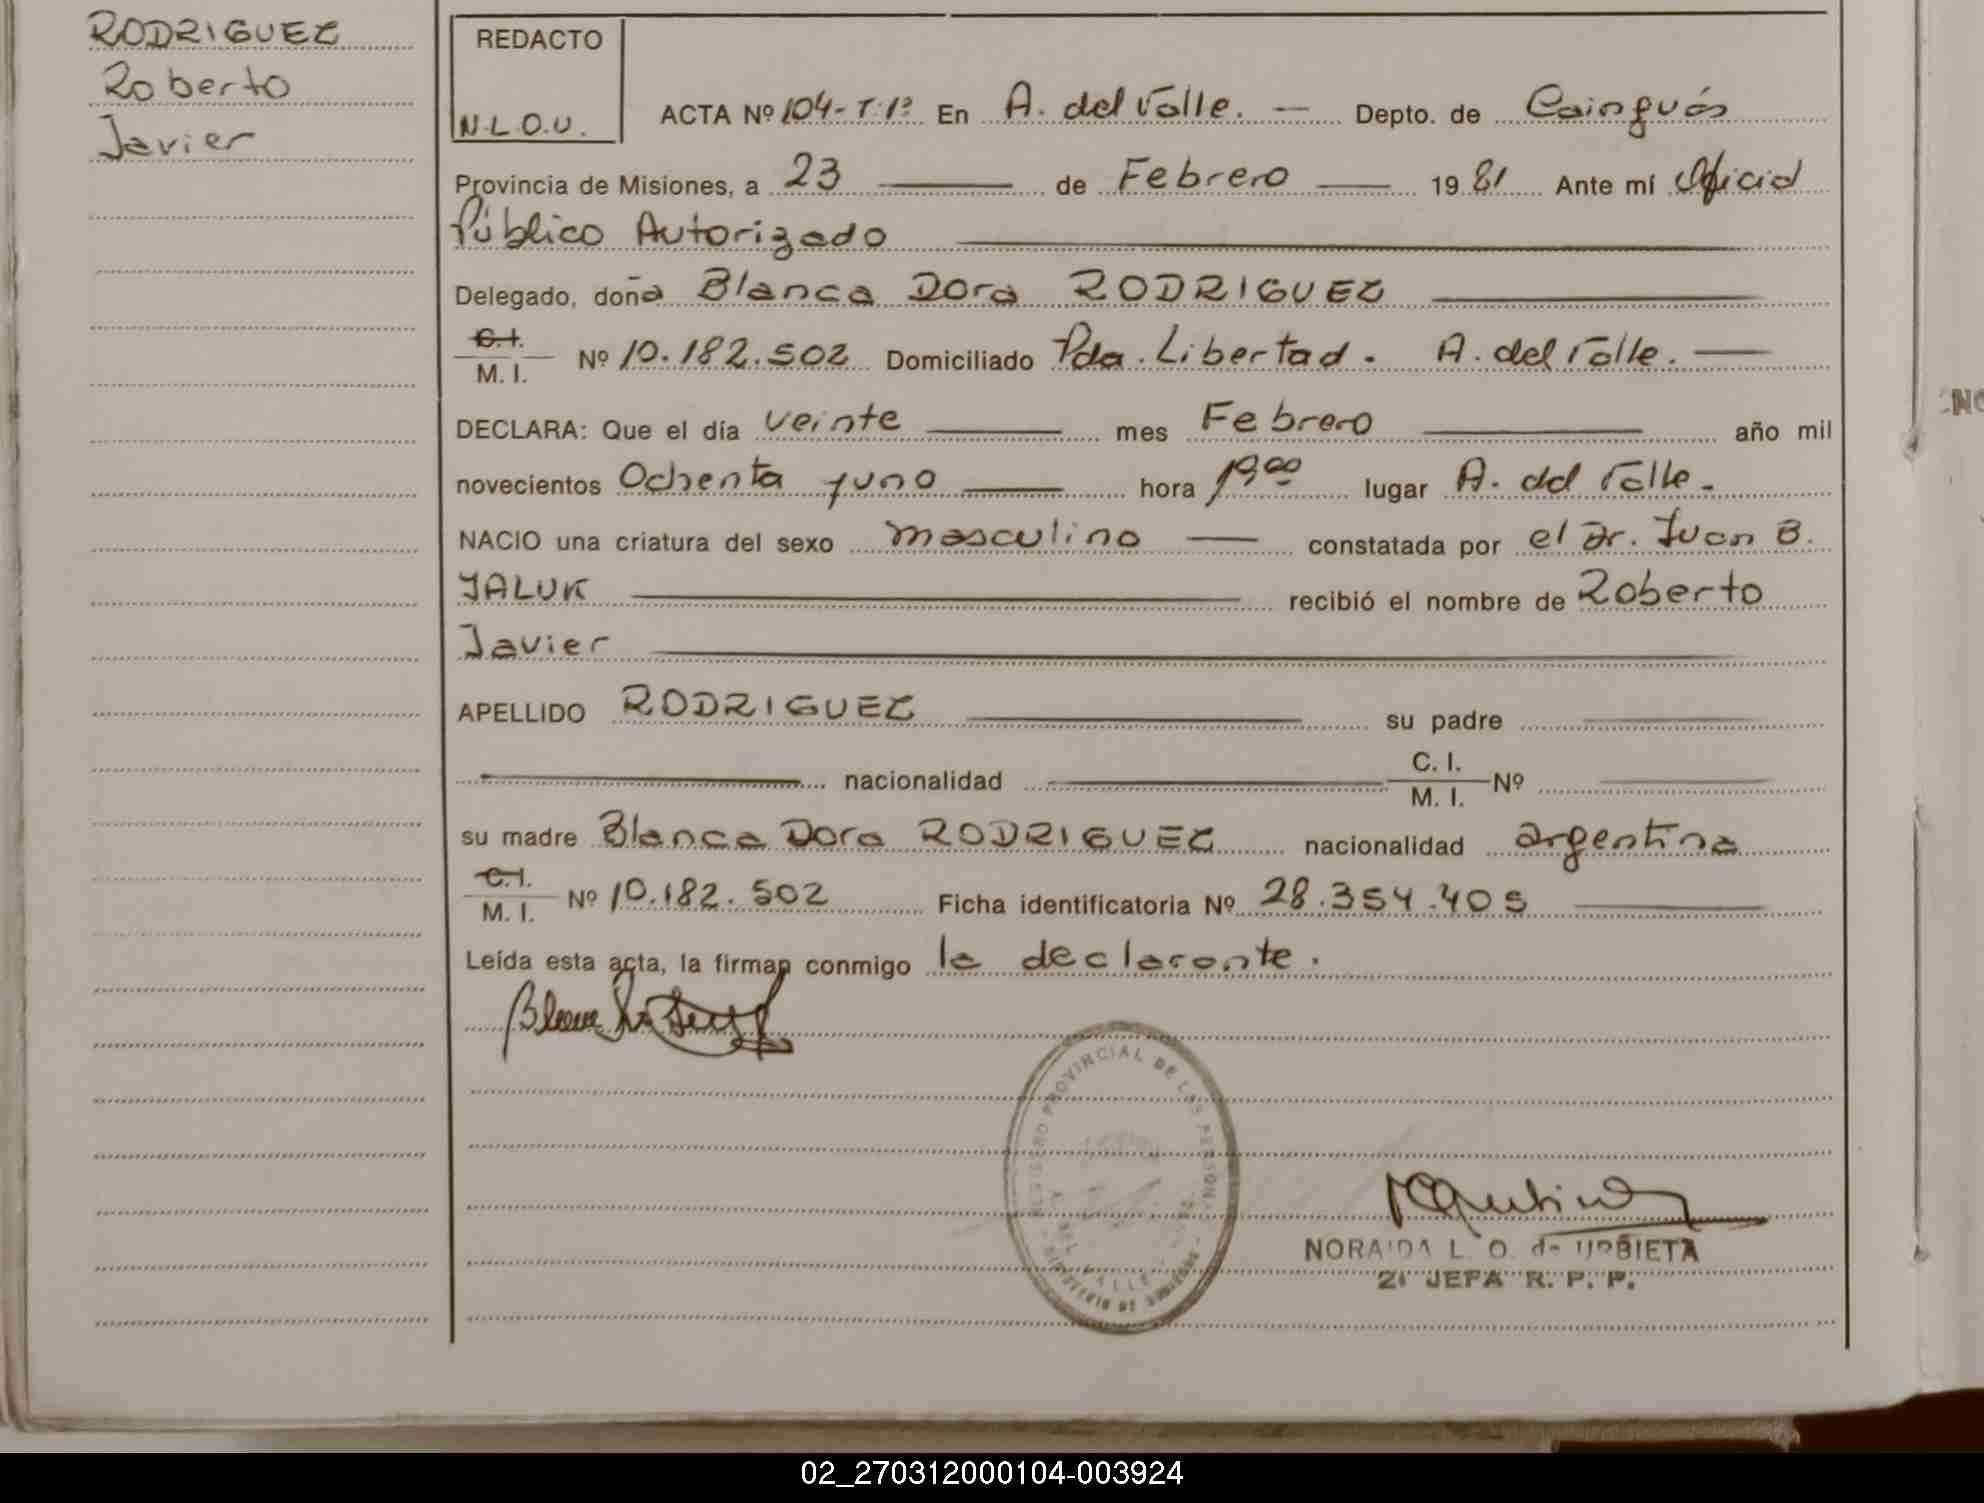 RODRIGUEZ
Roberto
Javier
REDACTO
N.L.O.U.
ACTA Nº 104-T:1º En A. del Valle. — Depto. de Cainguás
Provincia de Misiones, a 23 — de Febrero — 1981 Ante mí Oficial
Público Autorizado
Delegado, doña Blanca Dora RODRIGUEZ
C.I.
M. I. Nº 10.182.502 Domiciliado Pda. Libertad. A. del Valle. —
DECLARA: Que el día veinte — mes Febrero — año mil
novecientos Ochenta y uno — hora 19,00 lugar A. del Valle.
NACIO una criatura del sexo masculino — constatada por el Dr. Juan B.
JALUK — recibió el nombre de Roberto
Javier
APELLIDO RODRIGUEZ — su padre —
— nacionalidad — C. I.
M. I. Nº —
su madre Blanca Dora RODRIGUEZ nacionalidad argentina
C.I.
M. I. Nº 10.182.502 Ficha identificatoria Nº 28.354.405 —
Leída esta acta, la firman conmigo la declarante.
REGISTRO PROVINCIAL DE LAS PERSONAS
A. DEL VALLE
MINISTERIO DE GOBIERNO
NORAIDA L. O. de URBIETA
JEFA R. P. P.
02_270312000104-003924